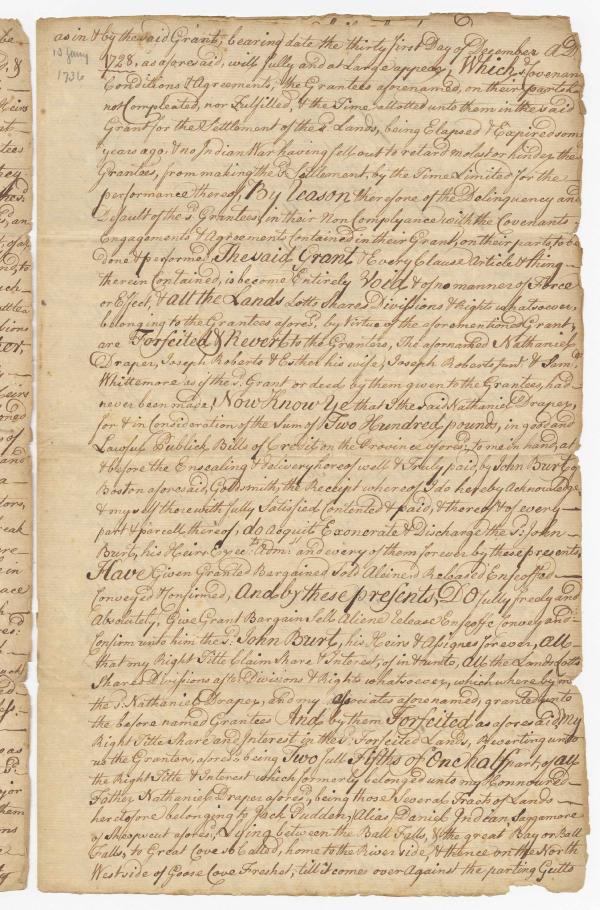 as in & by the said Grant, bearing date the thirty first Day of December A.D.
10 Jany
1736
1728, as aforesaid, will fully and at Large appear, Which Covenan
Conditions & Agreements, the Grantees aforenamed, on their parts
not Compleated, nor Fulfilled, & the Time allotted unto them in the said
Grant for the Settlement of the sd. Lands, being Elapsed & Expired som
years ago, & no Indian War having fell out to retard molest or hinder the
Grantees, from making the sd. Settlement, by the Time Limited for the
performance thereof, By reason therefore of the Delinquency and
Default of the sd. Grantees, in their Non Complyance with the Covenants
Engagements & Agreement Contained in their Grant, on their parts to be
done & performed The said Grant & Every Clause Article & thing
therein Contained, is become Entirely Void & of no manner of Force
or Effect, & all the Lands Lotts Shares Divissions & Rights whatsoever,
belonging to the Grantees aforesd. by Virtue of the aforementioned Grant,
are Forfeited & Revert to the Grantors, The afornamed Nathaniel
Draper, Joseph Roberts & Esther his wife, Joseph Roberts junr. & Saml.
Whittemore as if the sd. Grant or deed by them given to the Grantees, had
never been made, Now Know Ye that I the said Nathaniel Draper,
for & in Consideration of the Sum of Two Hundred pounds, in good and
Lawful Publick Bills of Credit on the Province aforesd. to me in hand, at
& before the Ensealing & delivery hereof well & Truly paid, by John Burt of
Boston aforesaid, Goldsmith, the Receipt whereof I do hereby Acknowledge
& myself therewith fully Satisfied Contented & paid, & thereof & of every
part & parcell thereof, do Acquit Exonerate & Discharge the sd. John
Burt, his Heirs Execrs. Admrs. and every of them forever by these presents,
Have Given Granted Bargained Sold Aliened Released Enfeoffed
Conveyed & Confirmed, And by these presents, Do fully freely and
Absolutely, Give Grant Bargain Sell Aliene Release Enfeoffe Convey and
Confirm unto him the sd. John Burt, his Heirs & Assignes forever, All
that my Right Title Claim Share & Interest, of in & unto, all the Lands Lotts
Shares Divissions after Divisions & Rights whatsoever, which where by me
the sd. Nathaniel Draper, and my associates aforenamed, granted unto
the before named Grantees And by them Forfeited as aforesaid, My
Right Title Share and Interest in the sd. Forfeited Lands, Reverting unto
us the Grantors, aforesd. being Two full Fifths of One half part, of all
the Right Title & Interest which formerly belonged unto my Honnoured
Father Nathaniel Draper aforesd. being those Several Tracts of Lands
heretofore belonging to Jack Pudden, Alias Daniel, Indean Saggamore
of Sheapscut aforesd. Lying between the Ball Falls, & the great Bay or Ball
Falls, to Great Cove so Called, home to the River side, & thence on the North
Westside of Goose Cove Freshet, till it comes over Against the parting Gutts